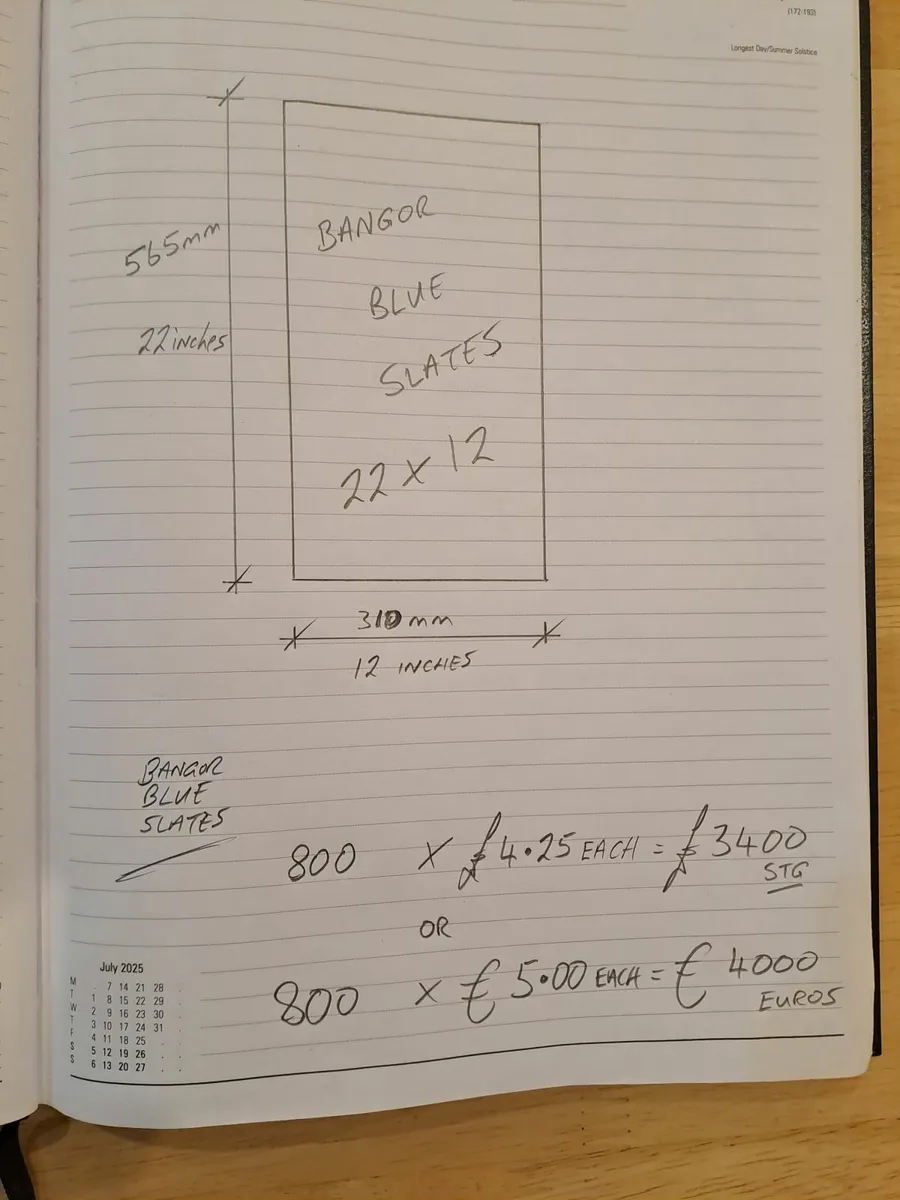 (172-193)
Longest Day/Summer Solstice
565mm
22 inches
BANGOR
BLUE
SLATES
22 x 12
310 mm
12 INCHES
BANGOR
BLUE
SLATES
800 x £4.25 EACH = £3400
STG
OR
800 x €5.00 EACH = € 4000
EUROS
July 2025
M . 7 14 21 28 .
T 1 8 15 22 29 .
W 2 9 16 23 30 .
T 3 10 17 24 31 .
F 4 11 18 25 . .
S 5 12 19 26 . .
S 6 13 20 27 . .